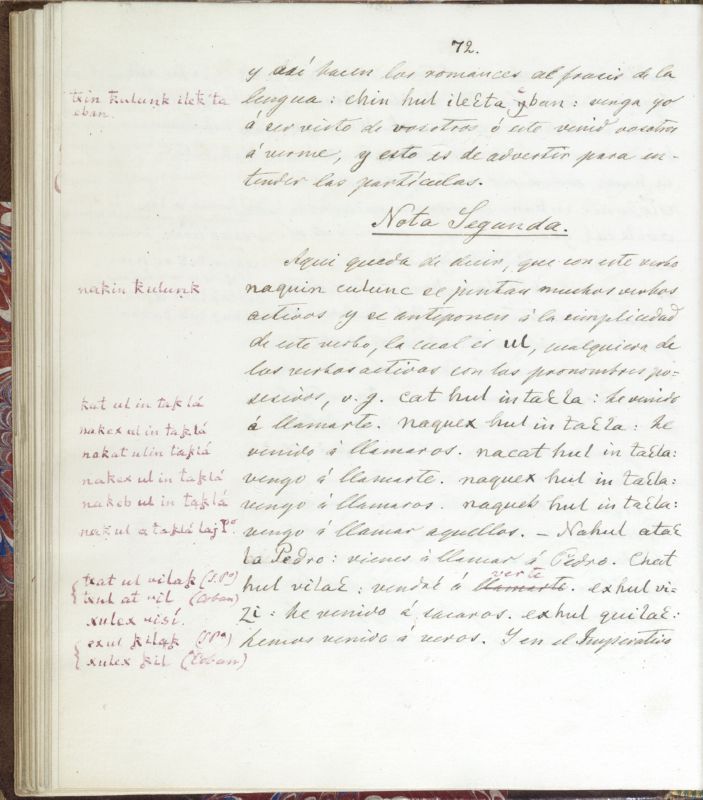 72.
y así hacen los romances al frasis de la
lengua: chin hul ileɛta yban: venga yo
á ser visto de vosotros, ó este venid vosotros
á verme, y esto es de advertir para en-
tender las particulas.
Nota Segunda.
Aqui queda de decir, que con este verbo
naquin culunc se juntan muchos verbos
activos y se anteponen á la simplicidad
de este verbo, la cual es ul, cualquiera de
los verbos activos con los pronombres po-
sesivos, v. g. cat hul intaɛla: he venido
á llamarte. naquex hul in taɛla: he
venido á llamaros. nacat hul in taɛla:
vengo á llamarte. naquex hul in taɛla:
vengo á llamaros. naqueb hul in taɛla:
vengo á llamar aquellos. – Nahul ataɛ
la Pedro: vienes á llamar á Pedro. Chat
hul vilaɛ: vendré á llamarte verte. exhul vi-
zi: he venido á sacaros. exhul quilaɛ:
hemos venido á veros. Y en el Imperativo
txin kulunk ilek ta
eban.
nakin kulunk
kat ul in taklá
nakex ul in taklá
nakat ul in taklá
nakex ul in taklá
nakeb ul in taklá
nak ul a taklá laj Pº.
txat ul vilak (S. Pº)
txul at vil (Coban)
xulex visí.
exul kilak (S. Pº)
xulex kil (Coban)